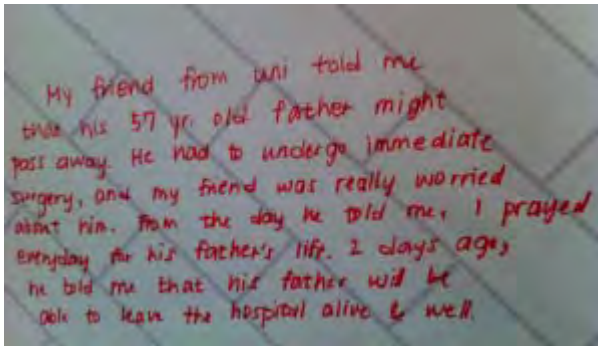 My friend from uni told me
that his 57 yr. old father might
pass away. He had to undergo immediate
surgery, and my friend was really worried
about him. From the day he told me, I prayed
everyday for his father's life. 2 days ago,
he told me that his father will be
able to leave the hospital alive & well.